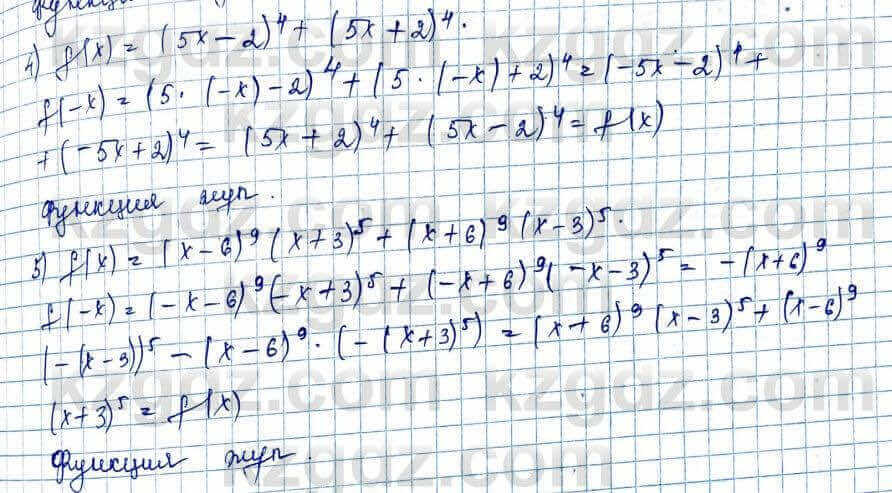 4) f(x) = (5x-2)⁴ + (5x+2)⁴.
f(-x) = (5·(-x)-2)⁴ + (5·(-x)+2)⁴ = (-5x-2)⁴ +
+ (-5x+2)⁴ = (5x+2)⁴ + (5x-2)⁴ = f(x)
функция жұп.
5) f(x) = (x-6)⁹(x+3)⁵ + (x+6)⁹(x-3)⁵.
f(-x) = (-x-6)⁹(-x+3)⁵ + (-x+6)⁹(-x-3)⁵ = -(x+6)⁹
(-(x-3))⁵ - (x-6)⁹·(-(x+3)⁵) = (x+6)⁹(x-3)⁵ + (x-6)⁹
(x+3)⁵ = f(x)
Функция жұп.